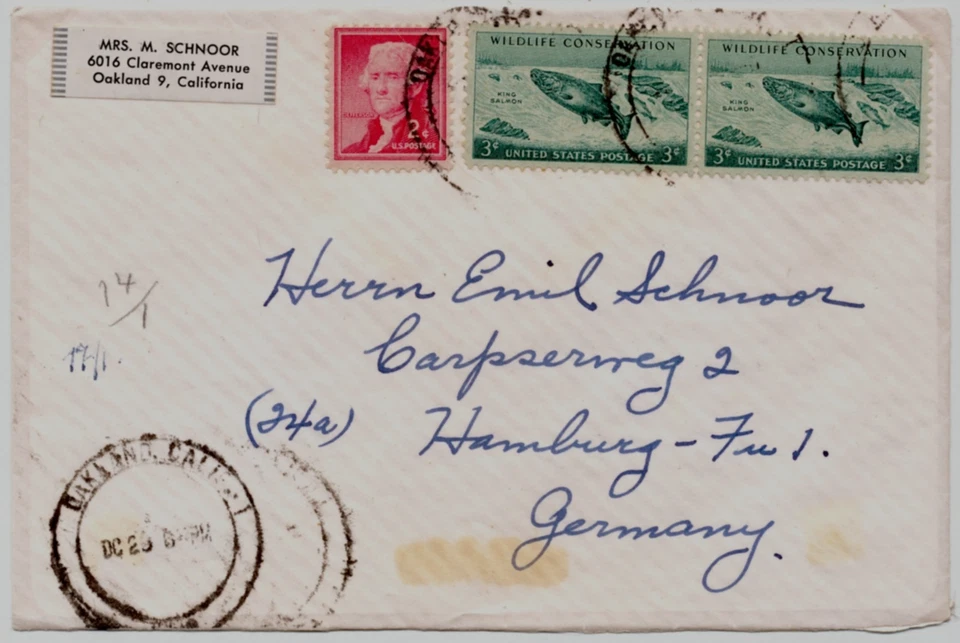 MRS. M. SCHNOOR
6016 Claremont Avenue
Oakland 9, California
JEFFERSON
2¢
U.S. POSTAGE
WILDLIFE CONSERVATION
KING
SALMON
3¢ UNITED STATES POSTAGE 3¢
WILDLIFE CONSERVATION
KING
SALMON
3¢ UNITED STATES POSTAGE 3¢
Herrn Emil Schnoor
14/1
17/1.
Carpserweg 2
(24a) Hamburg-Fu 1.
Germany.
OAKLAND, CALIF.
DC 28 PM